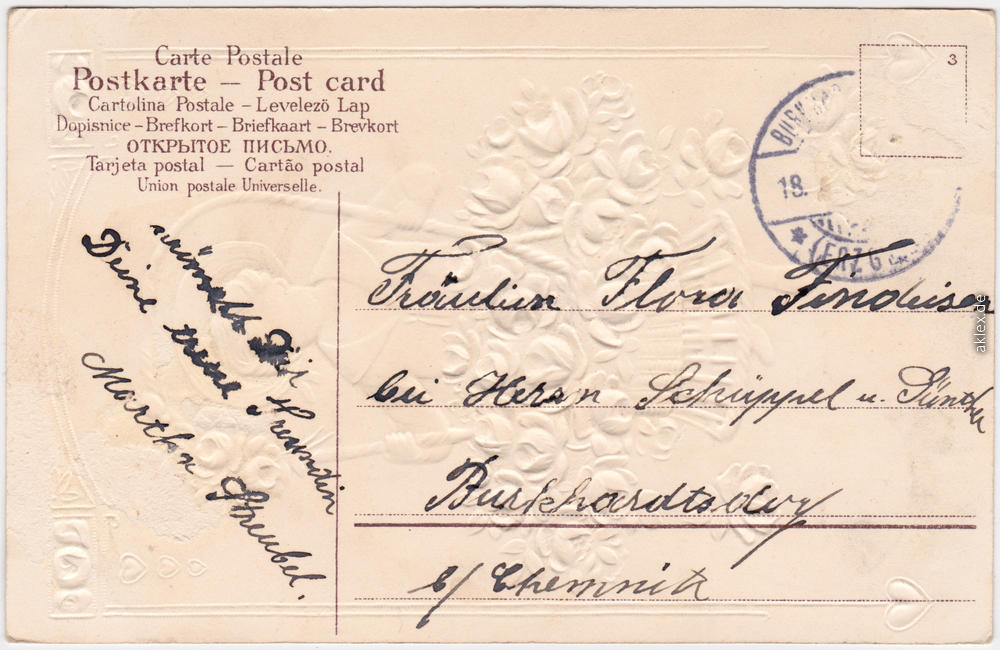 Carte Postale
Postkarte — Post card
Cartolina Postale – Levelezö Lap
Dopisnice – Brefkort – Briefkaart – Brevkort
ОТКРЫТОЕ ПИСЬМО.
Tarjeta postal — Cartão postal
Union postale Universelle.
3
18.
(ERZG
wünscht Dir
Deine treue Freundin
Martha Streubel.
Fräulein Flora
bei Herrn Schüppel u.
Burkhardtsdorf
b/ Chemnitz
aklex.de